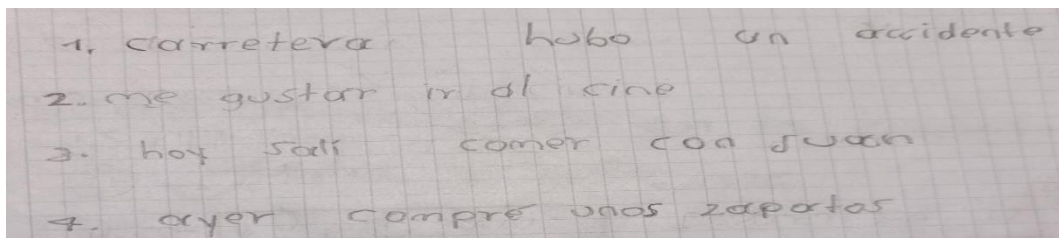 1. carretera hubo un accidente
2. me gustar ir al cine
3. hoy salí comer con Juan
4. ayer compré unos zapatos